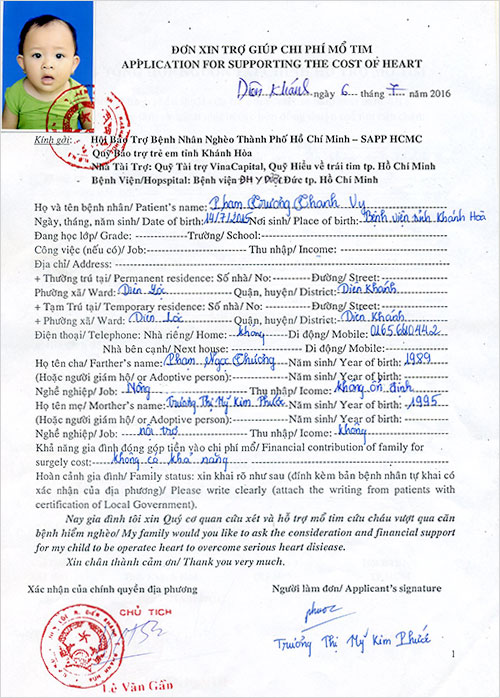 ĐƠN XIN TRỢ GIÚP CHI PHÍ MỔ TIM
APPLICATION FOR SUPPORTING THE COST OF HEART
Diên Khánh ngày 6 tháng 7 năm 2016
Kính gởi: Hội Bảo Trợ Bệnh Nhân Nghèo Thành Phố Hồ Chí Minh – SAPP HCMC
Quỹ Bảo trợ trẻ em tỉnh Khánh Hòa
Nhà Tài Trợ: Quỹ Tài trợ VinaCapital, Quỹ Hiểu về trái tim tp. Hồ Chí Minh
Bệnh Viện/Hopspital: Bệnh viện ĐH Y Dược Đức tp. Hồ Chí Minh
Họ và tên bệnh nhân/ Patient's name: Phạm Trương Thanh Vy
Ngày, tháng, năm sinh/ Date of birth: 14/7/2015 Nơi sinh/ Place of birth: Bệnh viện tỉnh Khánh Hoà
Đang học lớp/ Grade: Trường/ School:
Công việc (nếu có)/ Job: Thu nhập/ Income:
Địa chỉ/ Address:
+ Thường trú tại/ Permanent residence: Số nhà/ No: Đường/ Street:
Phường xã/ Ward: Diên Lộc Quận, huyện/ District: Diên Khánh
+ Tạm Trú tại/ Temporary residence: Số nhà/ No: Đường/ Street:
+ Phường xã/ Ward: Diên Lộc Quận, huyện/ District: Diên Khánh
Điện thoại/ Telephone: Nhà riêng/ Home: không Di động/ Mobile:
Nhà bên cạnh/ Next house: Di động/ Mobile:
Họ tên cha/ Farther's name: Phạm Ngọc Chương Năm sinh/ Year of birth: 1989
(Hoặc người giám hộ/ or Adoptive person): Năm sinh/ Year of birth:
Nghề nghiệp/ Job: Nông Thu nhập/ Icome: Không ổn định
Họ tên mẹ/ Morther's name: Trương Thị Mỹ Kim Phước Năm sinh/ Year of birth: 1995
(Hoặc người giám hộ/ or Adoptive person): Năm sinh/ Year of birth:
Nghề nghiệp/ Job: nội trợ Thu nhập/ Icome: không
Khả năng gia đình đóng góp tiền vào chi phí mổ/ Financial contribution of family for
surgely cost: không có khả năng
Hoàn cảnh gia đình/ Family status: xin khai rõ như sau (đính kèm bản bệnh nhân tự khai có
xác nhận của địa phương)/ Please write clearly (attach the writing from patients with
certification of Local Government).
Nay gia đình tôi xin Quý cơ quan cứu xét và hỗ trợ mổ tim cứu cháu vượt qua căn
bệnh hiểm nghèo/ My family would you like to ask the consideration and financial support
for my child to be operatec heart to overcome serious heart disiease.
Xin chân thành cảm ơn/ Thank you very much.
Xác nhận của chính quyền địa phương Người làm đơn/ Applicant's signature
CHỦ TỊCH
phước
Trương Thị Mỹ Kim Phước
Lê Văn Gấn
1